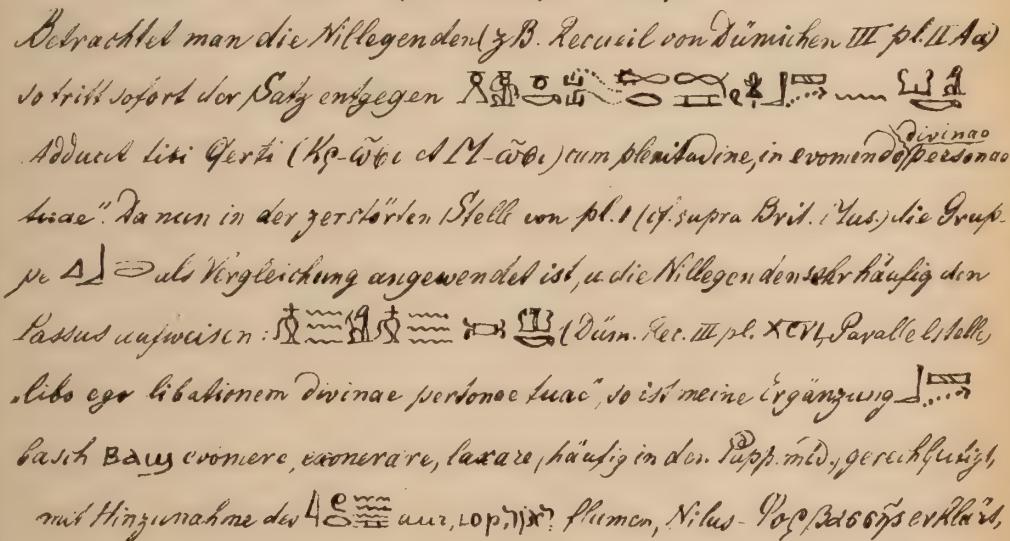 Betrachtet man die Nillegenden (z B. Recueil von Dümichen III pl. II Aa)
so tritt sofort der Satz entgegen
Adducit tibi Qerti (Κρ-ῶφι et Μ-ῶφι) cum plenitudine, in evomendo divinae personae
tuae“. Da nun in der zerstörten Stelle von pl. 1 (cf. supra Brit. Mus.) die Grup-
pe als Vergleichung angewendet ist, u die Nillegenden sehr häufig den
Passus aufweisen: (Düm. Rec. III pl. XCVI, Parallelstelle,
„libo ego libationem divinae personae tuae“, so ist meine Ergänzung
basch ⲃⲁϣ evomere, exonerare, laxare, häufig in den Papp. méd., gerechtfertigt,
mit Hinzunahme des aur, ⲓⲟⲣ, יאר flumen, Nilus - erklärt,